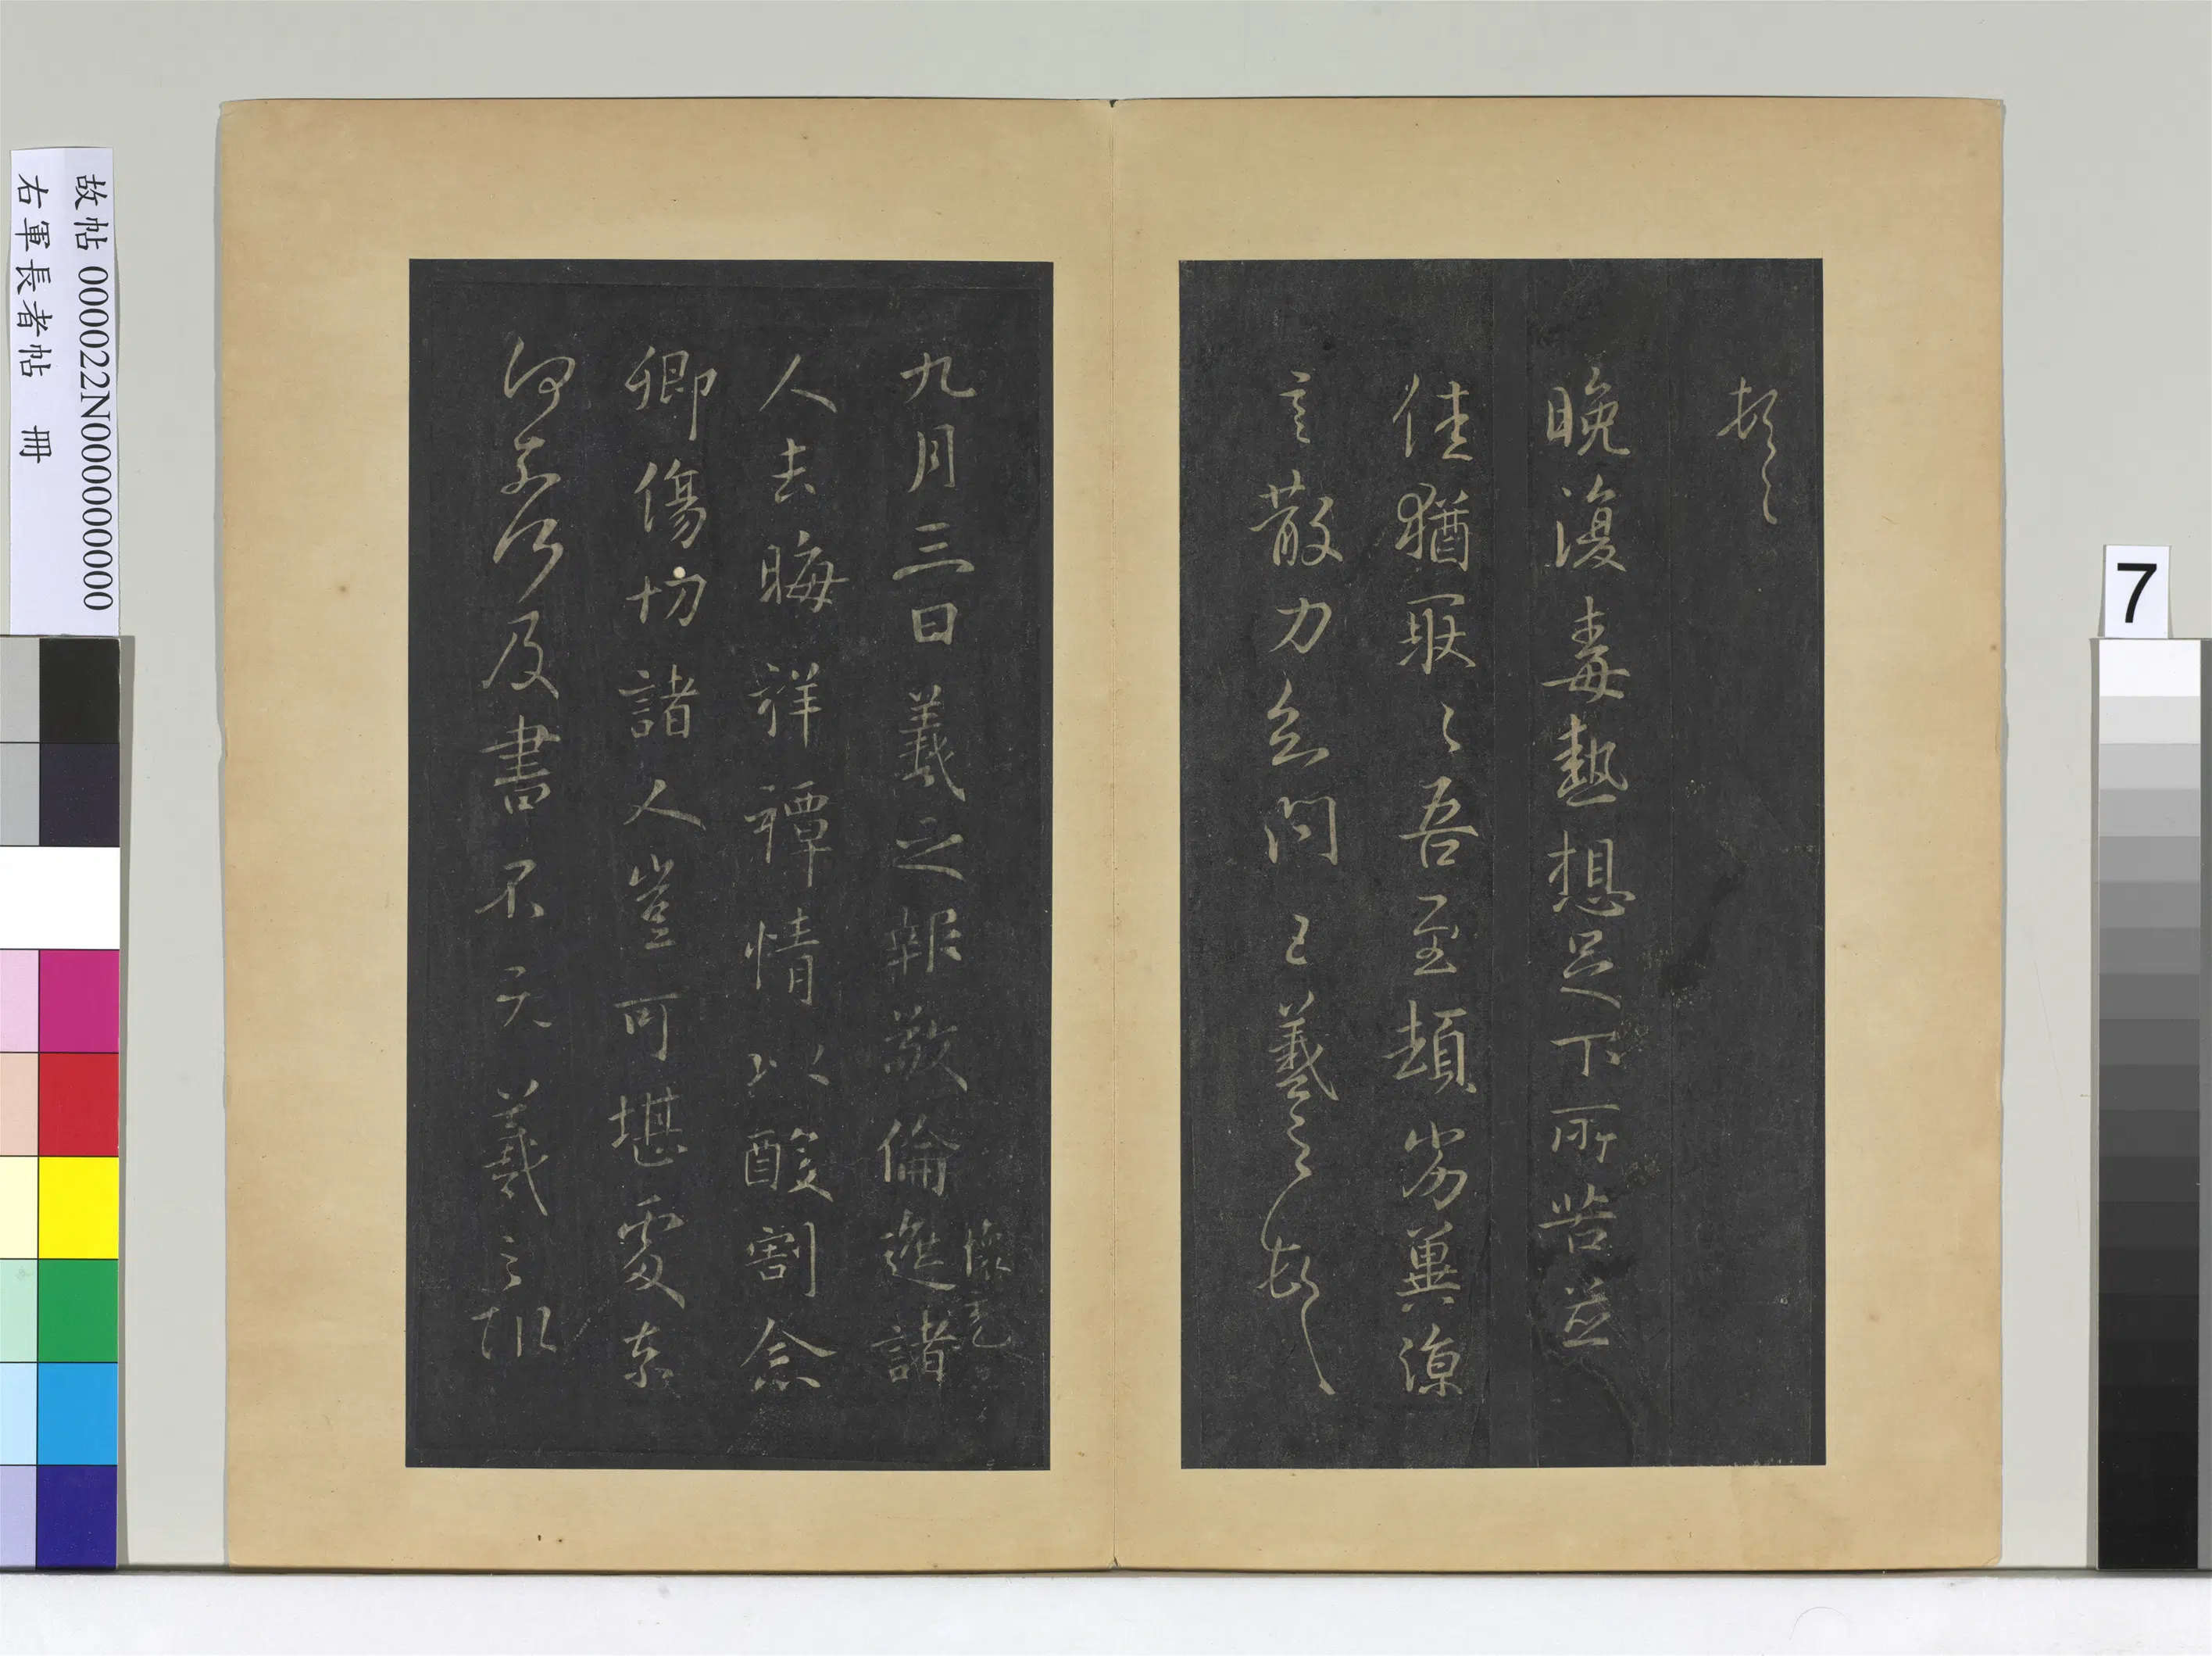 頓首
晚復毒熱想足下所苦並
佳猶耿〻吾至頓劣冀涼
言散力知問 王羲之頓首
懷充
九月三日羲之報敬倫遮諸
人去晦祥禫情以酸割念
卿傷切諸人豈可堪處奈
何奈何及書不既羲之報
故帖 000022N000000000
右軍長者帖 冊
7